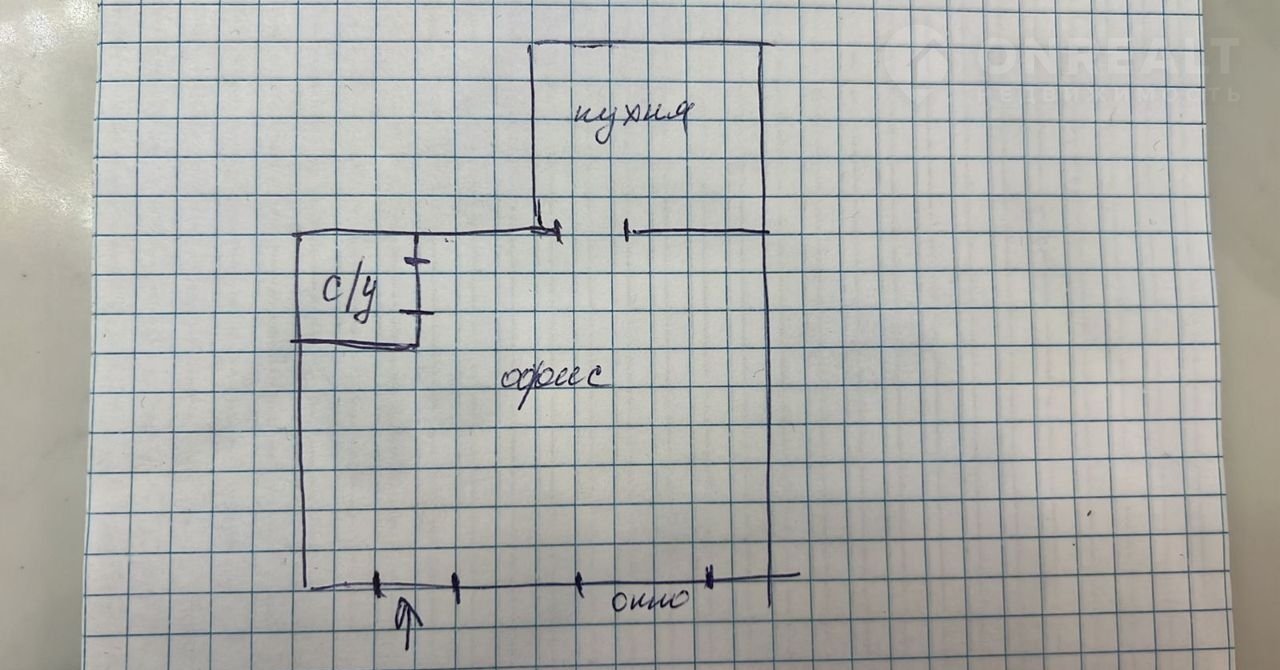 ONREALT
недвижимость
кухня
с/у
офис
окно